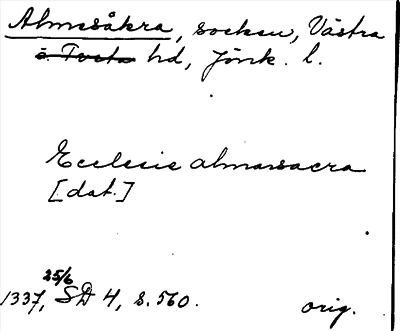 Almesåkra, socken, Västra
o. Tveta hd, Jönk. l.
Ecclesie almarsacra
[dat.]
25/6
1337, SD 4, s. 560.
orig.